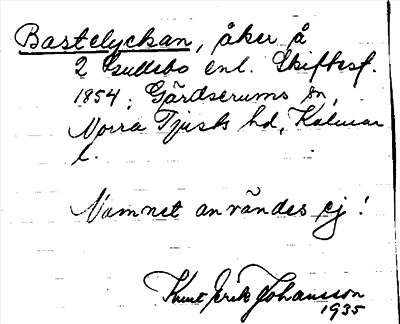 Bastelyckan, åker å
2 Gullebo enl. Skiftesf.
1854, Gärdserums sn,
Norra Tjusts hd, Kalmar
l.
Namnet användes ej!
Knut Erik Johansson
1935